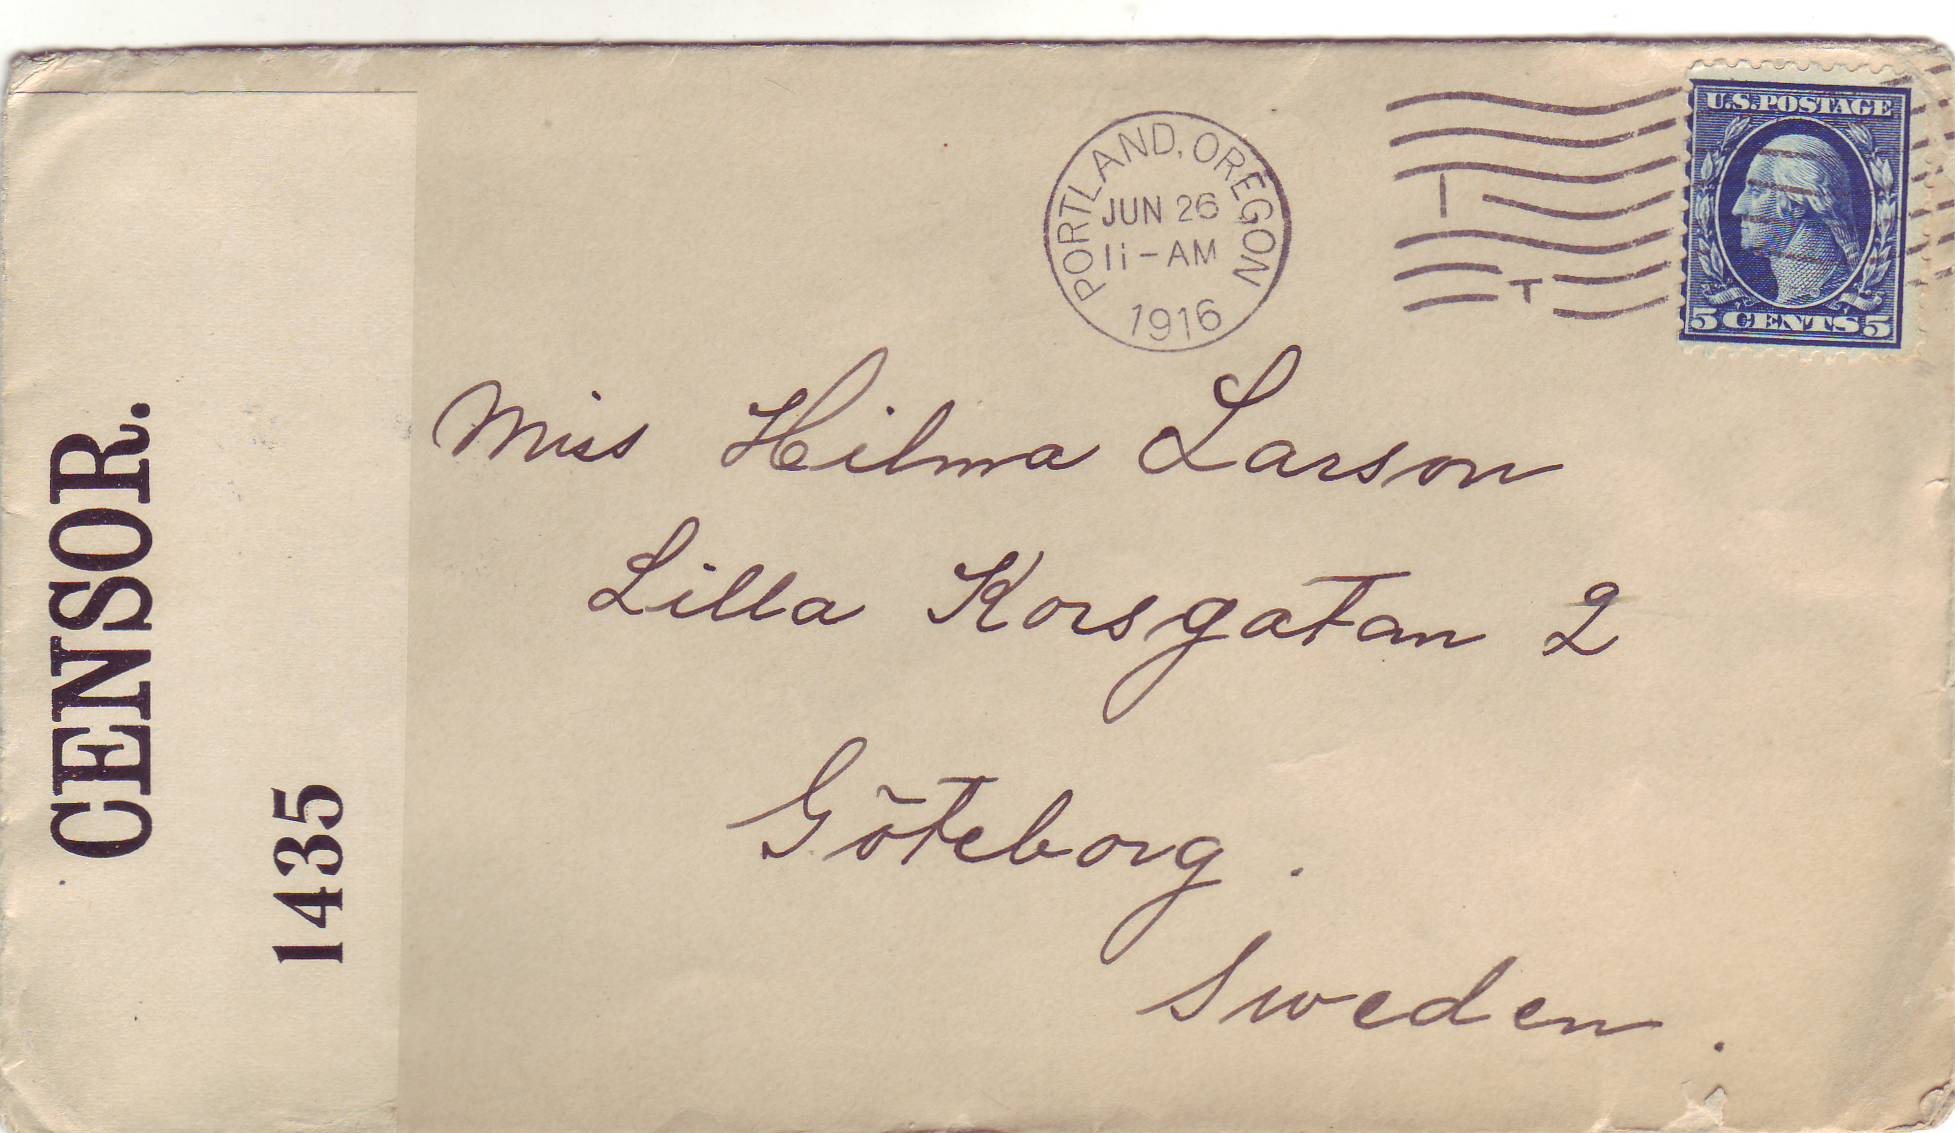 CENSOR.
1435
PORTLAND, OREGON
JUN 26
11-AM
1916
U.S. POSTAGE
5 CENTS 5
Miss Hilma Larson
Lilla Korsgatan 2
Göteborg.
Sweden.